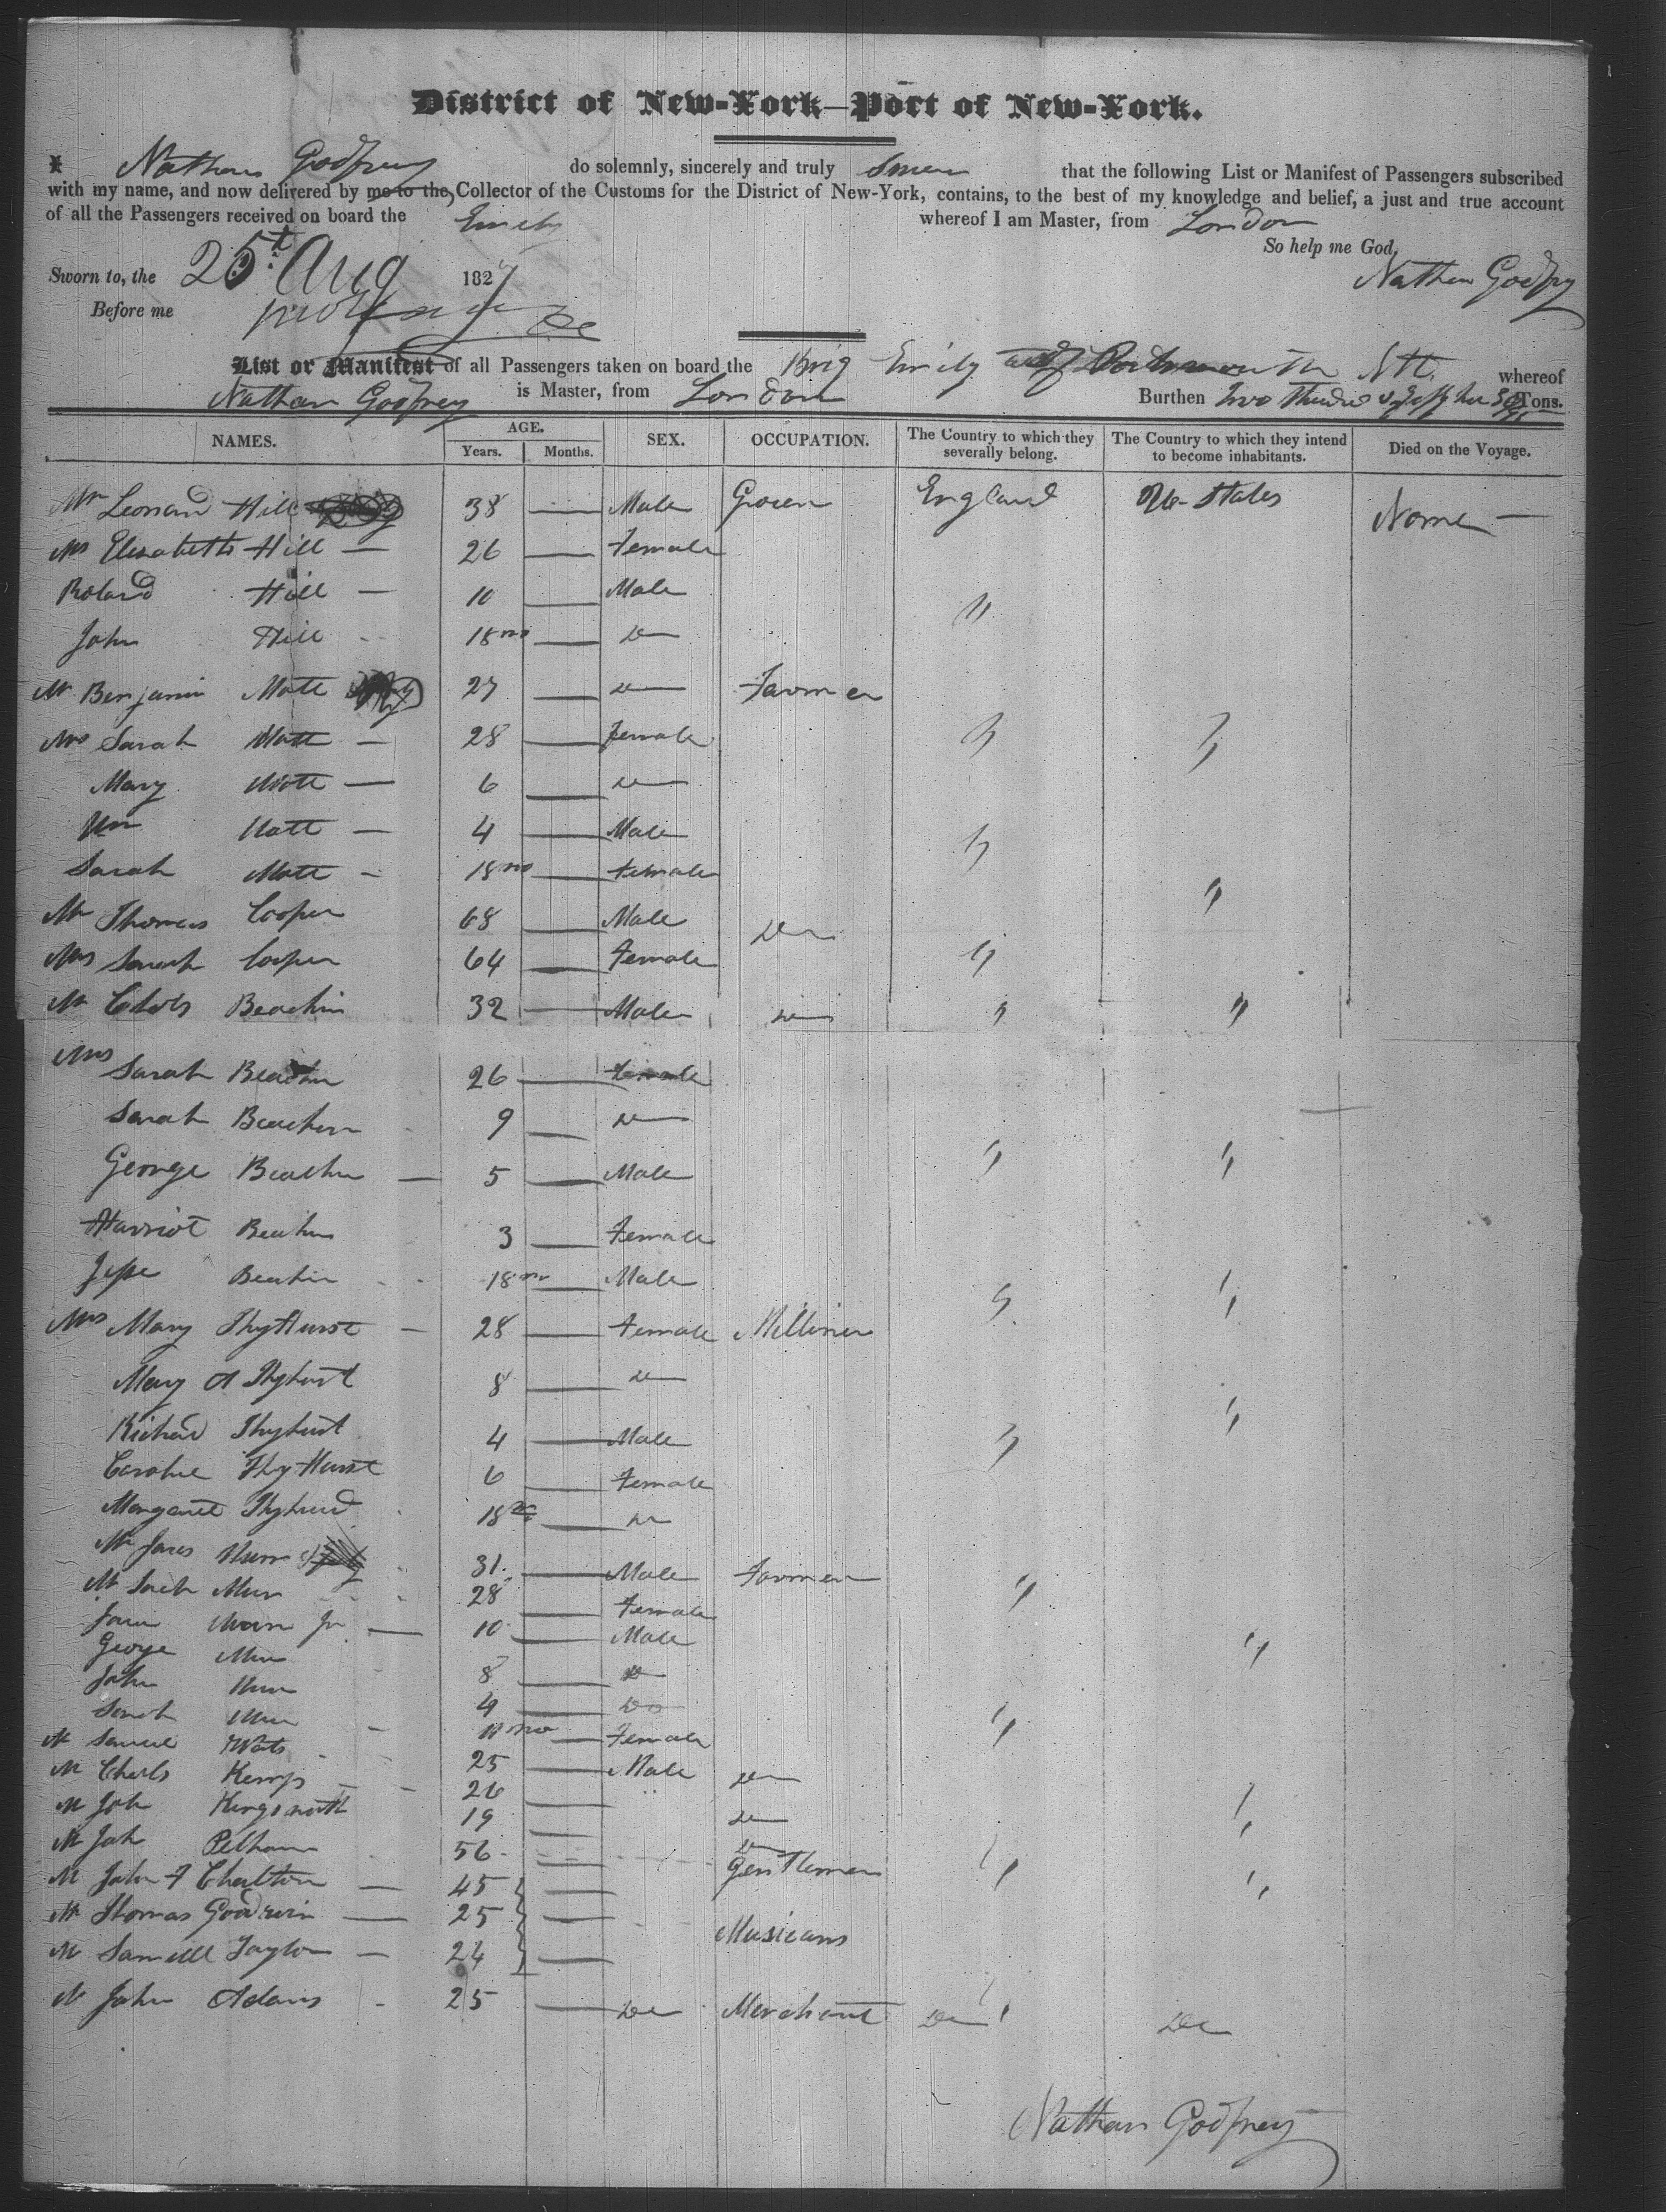 District of New-York—Port of New-York.
I Nathan Godfrey do solemnly, sincerely and truly Swear that the following List or Manifest of Passengers subscribed
with my name, and now delivered by me to the Collector of the Customs for the District of New-York, contains, to the best of my knowledge and belief, a just and true account
of all the Passengers received on board the Emily whereof I am Master, from London
So help me God,
Sworn to, the 25th Aug 1827 Nathan Godfrey
Before me
List or Manifest of all Passengers taken on board the Brig Emily of Portsmouth NH. whereof
Nathan Godfrey is Master, from London Burthen Two Hundred Tons.
NAMES. AGE. SEX. OCCUPATION. The Country to which they severally belong. The Country to which they intend to become inhabitants. Died on the Voyage.
Years. Months.
Mr Leonard Hill 38 — Male Grocer England Ud. States None —
Mrs Elizabeth Hill — 26 — Female
Roland Hill — 10 — Male
John Hill 18 mo — Do "
Mr Benjamin Mott 27 — Do Farmer
Mrs Sarah Mott — 28 — female " "
Mary Mott — 6 — Do
Wm Mott — 4 — Male "
Sarah Mott — 18 mo — Female "
Mr Thomas Cooper 68 — Male Do
Mrs Sarah Cooper 64 — Female "
Mr Charls Beachin 32 — Male Do " "
Mrs Sarah Beachin 26 — female
Sarah Beachin 9 — Do
George Beachin — 5 — Male " "
Harriot Beachin 3 — Female
Jesse Beachin 18 mo — Male " "
Mrs Mary ThyHurst — 28 — Female Milliner
Mary A Thyhurst 8 — Do
Richard Thyhurst 4 — Male " "
Caroline ThyHurst 6 — Female
Margaret Thyhurst 18 mo — Do
Mr James 31 — Male Farmer "
28 — Female
Jr — 10 — Male
George 8 — Do "
John 4 — Do
Sarah mo — Female "
Mr Samuel Watts 25 — Male Do
Mr Charls Kemp 26 — Do "
Mr Joh Kingsnorth 19 — Do
Mr Joh Pelham 56 — Gentlemen " "
Mr John F Charlton — 45 —
Mr Thomas Goodwin — 25 — Musicans
Mr Samuell Taylor — 24 —
Mr John Adams 25 — Do Merchant Do Do
Nathan Godfrey